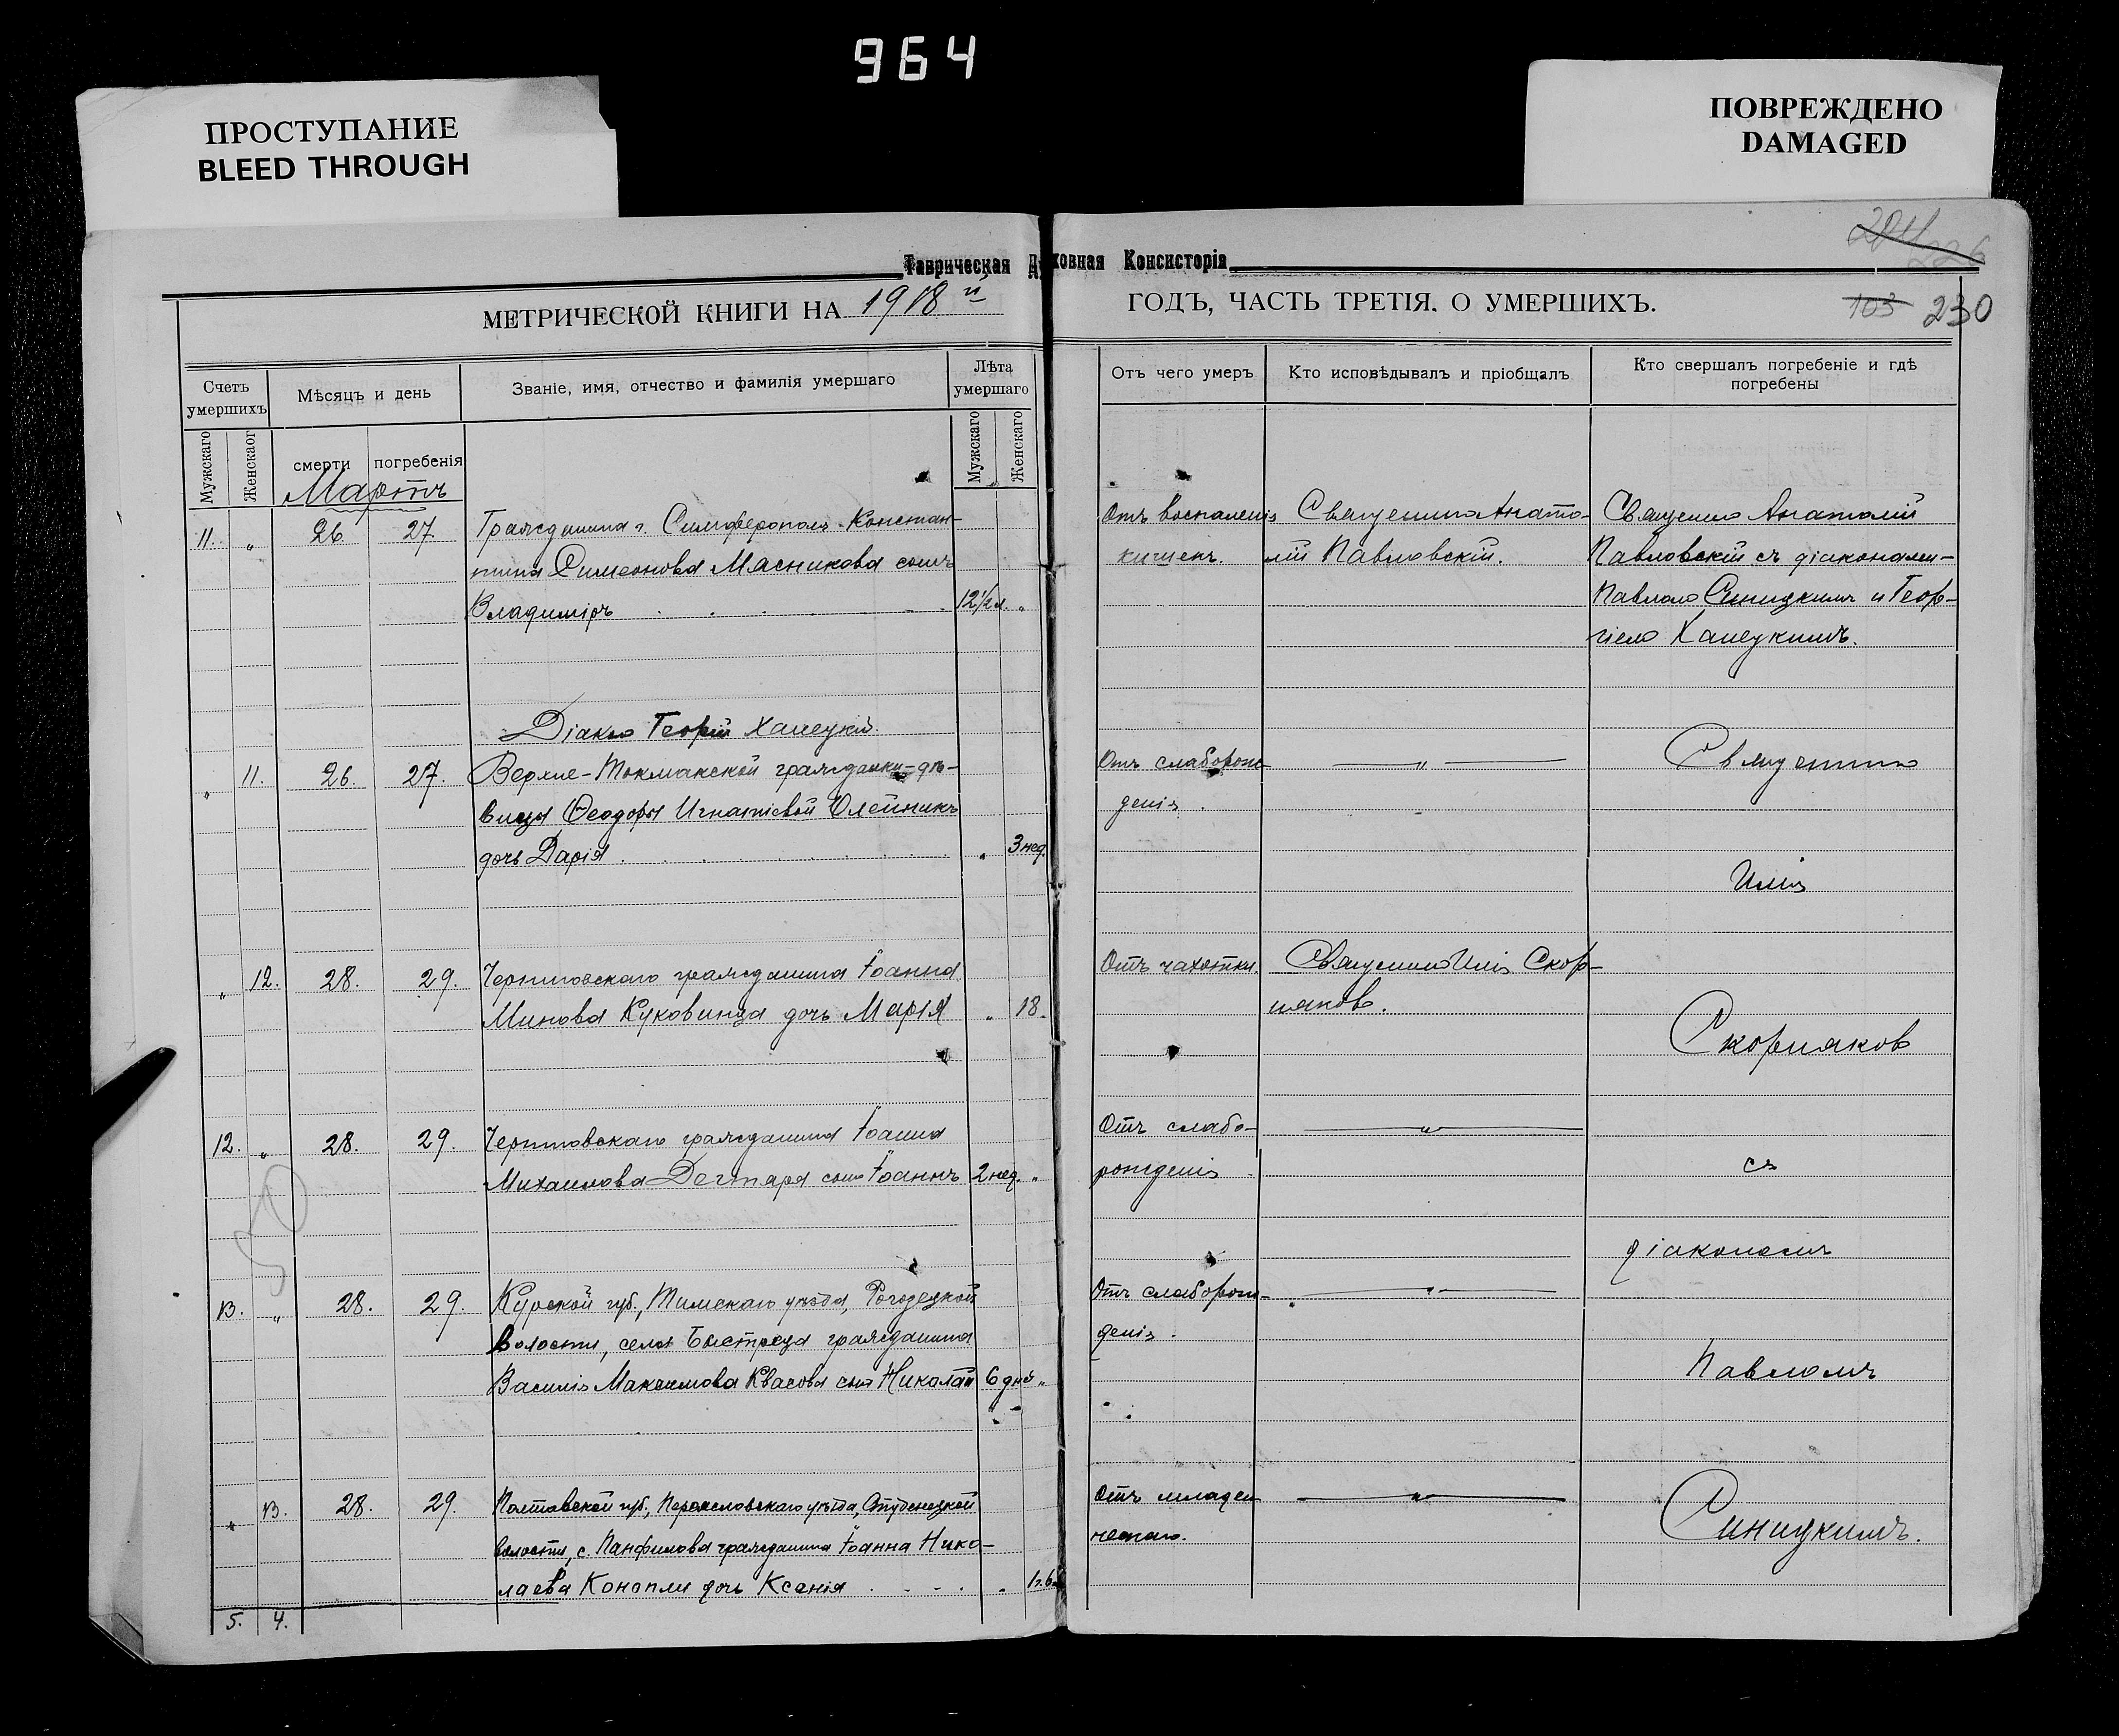 964
ПРОСТУПАНИЕ
BLEED THROUGH
ПОВРЕЖДЕНО
DAMAGED
Таврическая Духовная Консисторія
226
МЕТРИЧЕСКОЙ КНИГИ НА 1918 й ГОДЪ, ЧАСТЬ ТРЕТІЯ. О УМЕРШИХЪ.
103 230
Счетъ умершихъ
Мѣсяцъ и день
Званіе, имя, отчество и фамилія умершаго
Лѣта умершаго
Отъ чего умеръ
Кто исповѣдывалъ и пріобщалъ
Кто свершалъ погребеніе и гдѣ погребены
Мужскаго
Женскаго
смерти
погребенія
Мужскаго
Женскаго
Мартъ
11. " 26 27. Гражданина г. Симферополь Констан-
тина Симеонова Мясникова сынъ
Владиміръ 12½ л. "
Отъ воспаленія
кишекъ.
Священникъ Анато-
лій Павловскій.
Священникъ Анатолій
Павловскій съ діаконами-
Павломъ Синицкимъ и Геор-
гіемъ Ханецкимъ.
Діаконъ Георгій Ханецкій
" 11. 26. 27. Верхне-Токмакской гражданки-дѣ-
вицы Ѳеодоры Игнатіевой Олейникъ
дочь Дарія " 3 нед.
Отъ слаборож-
денія.
"
Священникъ
Илія
" 12. 28. 29. Черниговскаго гражданина Іоанна
Минова Куковинца дочь Марія " 18.
Отъ чахотки.
Священникъ Илія Скор-
няковъ.
Скорняковъ
12. " 28. 29. Черниговскаго гражданина Іоанна
Михаилова Дегтяря сынъ Іоаннъ 2 нед. "
Отъ слабо-
рожденія
"
съ
діакономъ
13. " 28. 29. Курской губ., Тимскаго уѣзда,
волости, села Быстреца гражданина
Василія Максимова Квасова сынъ Николай 6 дней "
Отъ слаборож-
денія.
"
Павломъ
" 13. 28. 29. Полтавской губ., Переяславскаго уѣзда, Студенецкой
волости, с. Панфилова гражданина Іоанна Нико-
лаева Конопли дочь Ксенія " 1 г. 6
Отъ младен-
ческаго.
"
Синицкимъ.
5. 4.